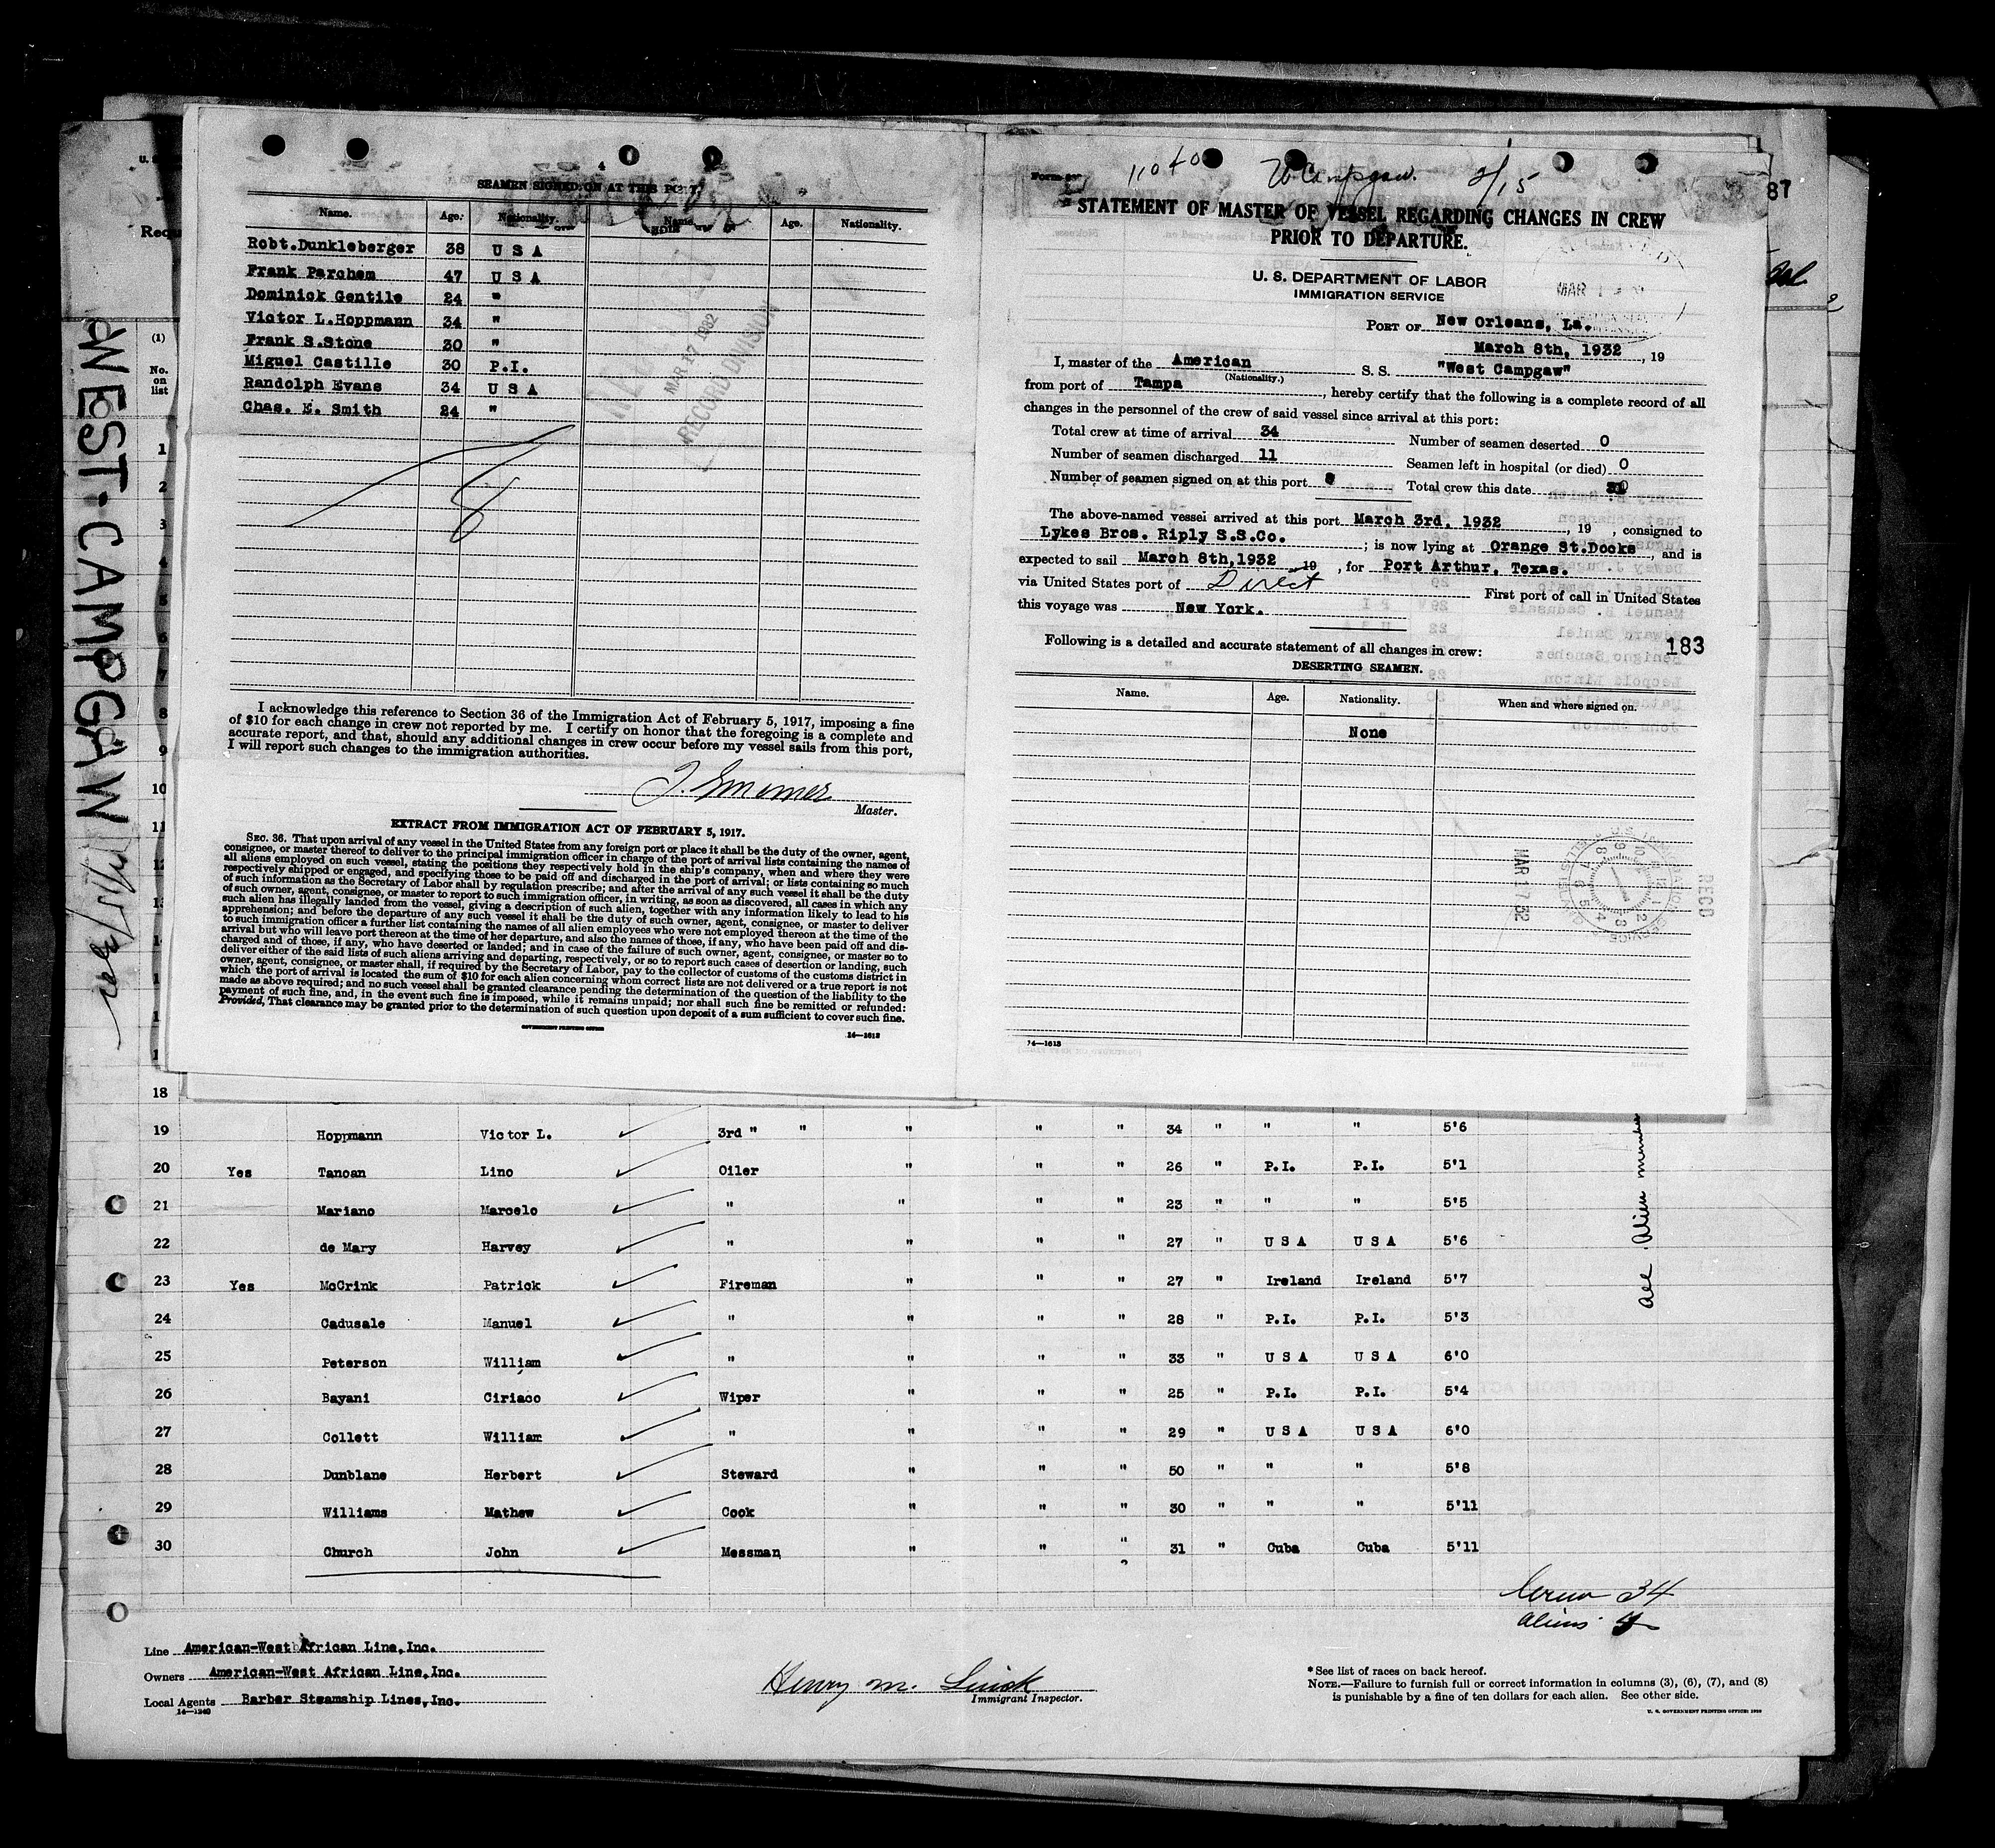 4
SEAMEN SIGNED ON AT THIS PORT.
Name. Age. Nationality. Name. Age. Nationality.
Robt.Dunkleberger 38 U S A
Frank Parchem 47 U S A
Dominick Gentile 24 "
Victor L.Hoppmann 34 "
Frank S.Stone 30 "
Miguel Castille 30 P.I.
Randolph Evans 34 U S A
Chas. E. Smith 24 "
8
MAR 17 1932
RECORD DIVISION
I acknowledge this reference to Section 36 of the Immigration Act of February 5, 1917, imposing a fine
of $10 for each change in crew not reported by me. I certify on honor that the foregoing is a complete and
accurate report, and that, should any additional changes in crew occur before my vessel sails from this port,
I will report such changes to the immigration authorities.
Master.
EXTRACT FROM IMMIGRATION ACT OF FEBRUARY 5, 1917.
SEC. 36. That upon arrival of any vessel in the United States from any foreign port or place it shall be the duty of the owner, agent,
consignee, or master thereof to deliver to the principal immigration officer in charge of the port of arrival lists containing the names of
all aliens employed on such vessel, stating the positions they respectively hold in the ship's company, when and where they were
respectively shipped or engaged, and specifying those to be paid off and discharged in the port of arrival; or lists containing so much
of such information as the Secretary of Labor shall by regulation prescribe; and after the arrival of any such vessel it shall be the duty
of such owner, agent, consignee, or master to report to such immigration officer, in writing, as soon as discovered, all cases in which any
such alien has illegally landed from the vessel, giving a description of such alien, together with any information likely to lead to his
apprehension; and before the departure of any such vessel it shall be the duty of such owner, agent, consignee, or master to deliver
to such immigration officer a further list containing the names of all alien employees who were not employed thereon at the time of the
arrival but who will leave port thereon at the time of her departure, and also the names of those, if any, who have been paid off and dis-
charged and of those, if any, who have deserted or landed; and in case of the failure of such owner, agent, consignee, or master so to
deliver either of the said lists of such aliens arriving and departing, respectively, or so to report such cases of desertion or landing, such
owner, agent, consignee, or master shall, if required by the Secretary of Labor, pay to the collector of customs of the customs district in
which the port of arrival is located the sum of $10 for each alien concerning whom correct lists are not delivered or a true report is not
made as above required; and no such vessel shall be granted clearance pending the determination of the question of the liability to the
payment of such fine, and, in the event such fine is imposed, while it remains unpaid; nor shall such fine be remitted or refunded:
Provided, That clearance may be granted prior to the determination of such question upon deposit of a sum sufficient to cover such fine.
GOVERNMENT PRINTING OFFICE
14—1613
W Campgaw. 2/15
87
STATEMENT OF MASTER OF VESSEL REGARDING CHANGES IN CREW
PRIOR TO DEPARTURE.
U. S. DEPARTMENT OF LABOR
IMMIGRATION SERVICE
PORT OF New Orleans, La.
March 8th, 1932, 19
I, master of the American S. S. "West Campgaw"
(Nationality.)
from port of Tampa, hereby certify that the following is a complete record of all
changes in the personnel of the crew of said vessel since arrival at this port:
Total crew at time of arrival 34 Number of seamen deserted 0
Number of seamen discharged 11 Seamen left in hospital (or died) 0
Number of seamen signed on at this port Total crew this date
The above-named vessel arrived at this port March 3rd, 1932, 19 , consigned to
Lykes Bros. Riply S.S.Co. ; is now lying at Orange St.Docks, and is
expected to sail March 8th,1932 19 , for Port Arthur, Texas.
via United States port of Direct First port of call in United States
this voyage was New York.
Following is a detailed and accurate statement of all changes in crew: 183
DESERTING SEAMEN.
Name. Age. Nationality. When and where signed on.
None
REC'D
MAR 17 32
14—1613
WEST-CAMPGAW
(1)
No.
on
list
1
2
3
4
5
6
7
8
9
10
11
18
19 Hoppmann Victor L. 3rd " " " " " 34 " " " 5'6
20 Yes Tanoan Lino Oiler " " " 26 " P.I. P.I. 5'1
21 Mariano Marcelo " " " " 23 " " " 5'5
22 de Mary Harvey " " " " 27 " U S A U S A 5'6
23 Yes McCrink Patrick Fireman " " " 27 " Ireland Ireland 5'7
24 Cadusale Manuel " " " " 28 " P.I. P.I. 5'3
25 Peterson William " " " " 33 " U S A U S A 6'0
26 Bayani Ciriaco Wiper " " " 25 " P.I. P.I. 5'4
27 Collett William " " " " 29 " U S A U S A 6'0
28 Dunblane Herbert Steward " " " 50 " " " 5'8
29 Williams Mathew Cook " " " 30 " " " 5'11
30 Church John Messman " " " 31 " Cuba Cuba 5'11
All Alien
Crew 34
Aliens
Line American-West African Line,Inc.
Owners American-West African Line,Inc.
Local Agents Barber Steamship Lines,Inc.
14—1240
Henry M.
Immigrant Inspector.
* See list of races on back hereof.
NOTE.—Failure to furnish full or correct information in columns (3), (6), (7), and (8)
is punishable by a fine of ten dollars for each alien. See other side.